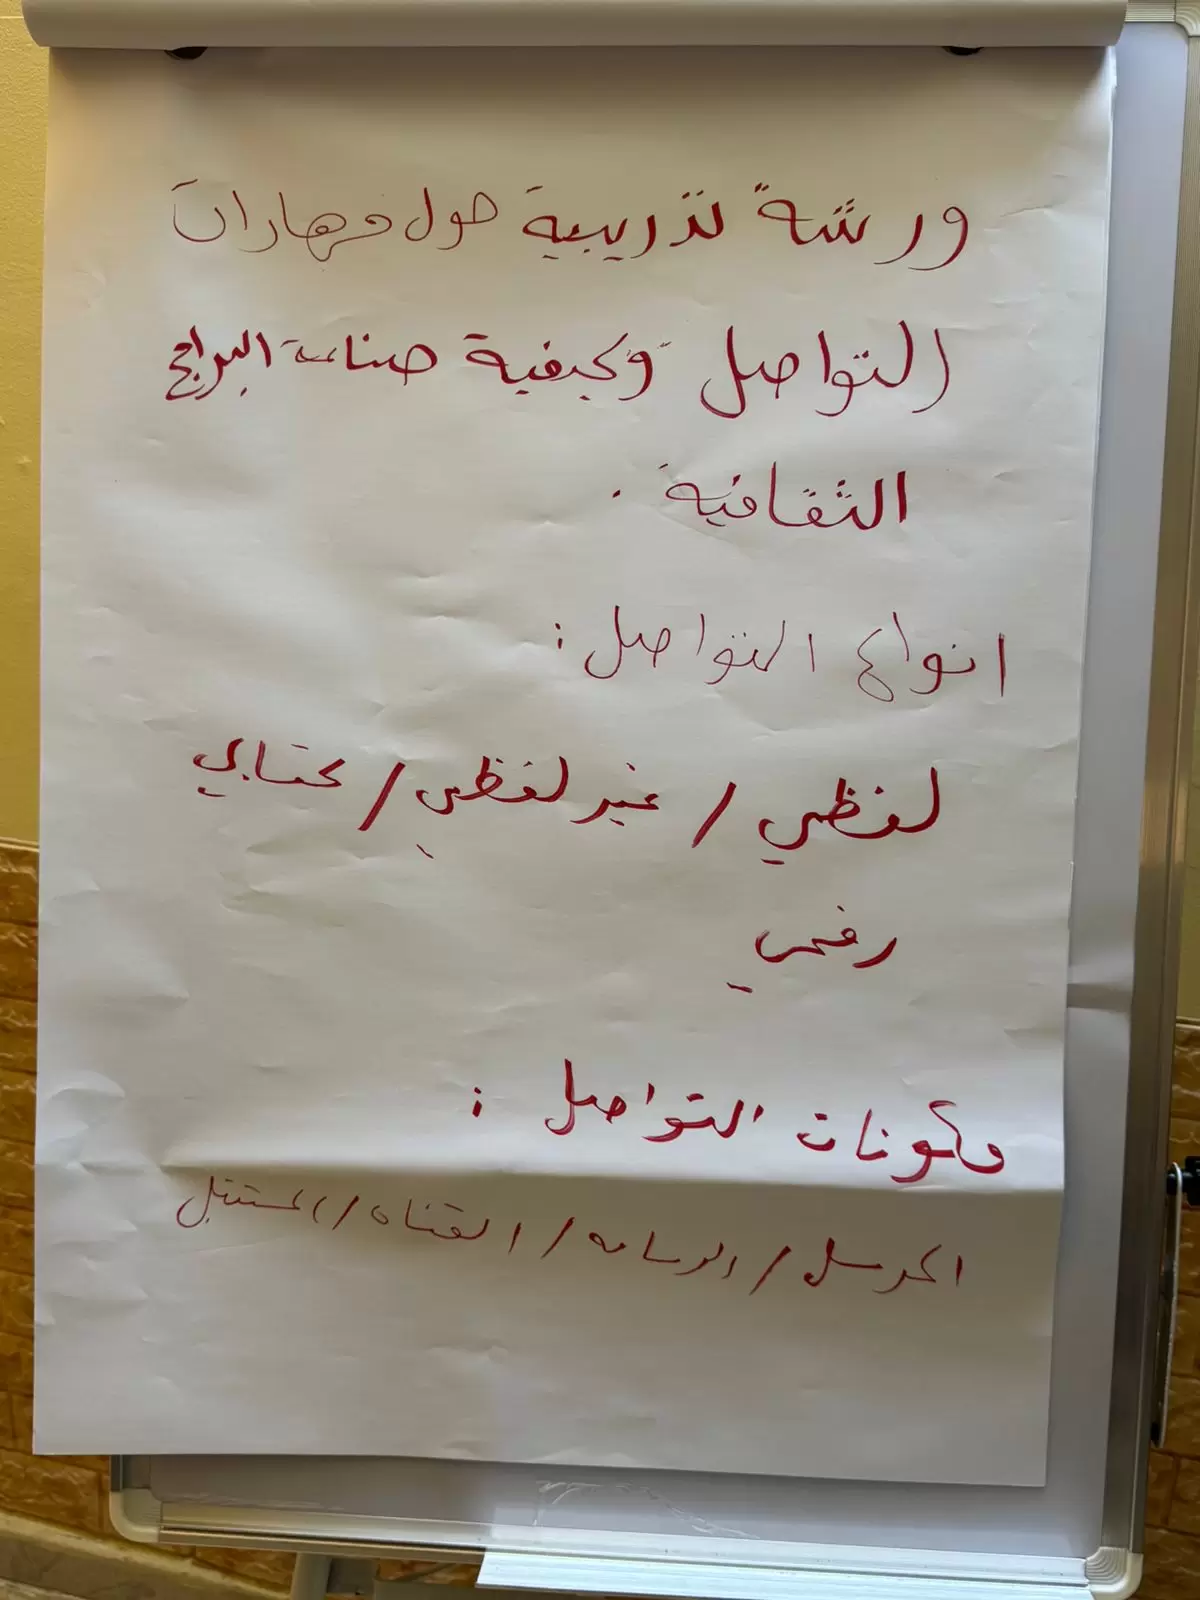 ورشة تدريبية حول مهارات
التواصل وكيفية صناعة البرامج
الثقافية .
انواع التواصل :
لفظي / غير لفظي / كتابي
رقمي
مكونات التواصل :
المرسل / الرسالة / القناة / المستقبل